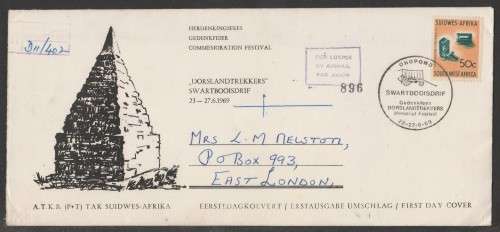 D11/402
HERDENKINGSFEES
GEDENKFEIER
COMMEMORATION FESTIVAL
„DORSLANDTREKKERS"
SWARTBOOISDRIF
23 — 27.6.1969
PER LUGPOS
BY AIRMAIL
PAR AVION
896
SUIDWES-AFRIKA
50c
SOUTH WEST AFRICA
OHOPOHO
SWARTBOOISDRIF
Gedenkfees
DORSLANDTREKKERS
Memorial Festival
23-27-6-69
MRS L-M NELSTON,
P O BOX 993,
EAST LONDON.
A.T.K.B. (P+T) TAK SUIDWES-AFRIKA
EERSTDAGKOEVERT / ERSTAUSGABE UMSCHLAG / FIRST DAY COVER